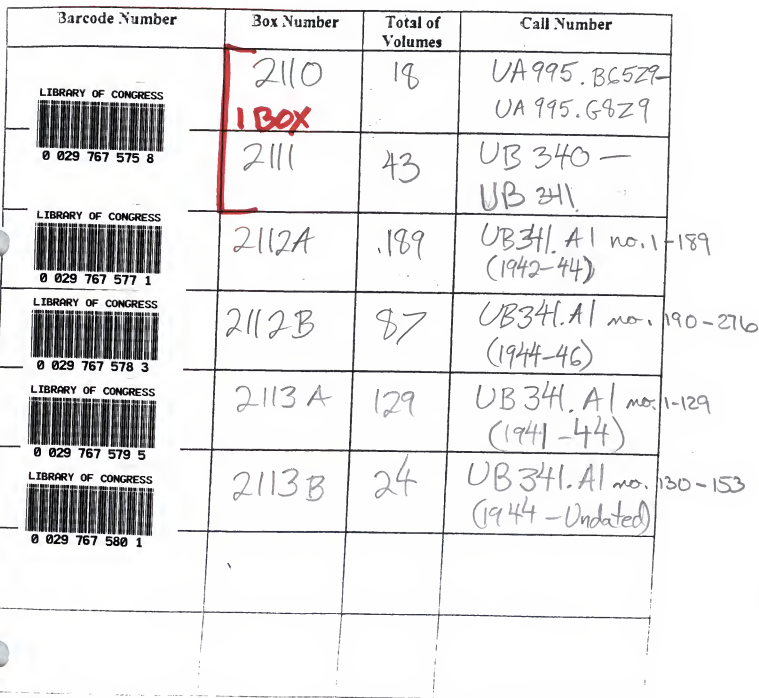 Barcode Number Box Number Total of Volumes Call Number
LIBRARY OF CONGRESS
0 029 767 575 8
1 BOX
2110 18 UA995.BG5Z9-
UA 995.G8Z9
2111 43 UB 340 —
UB 341
LIBRARY OF CONGRESS
0 029 767 577 1
2112A .189 UB341.A1 no. 1-189
(1942-44)
LIBRARY OF CONGRESS
0 029 767 578 3
2112B 87 UB341.A1 no. 190-276
(1944-46)
LIBRARY OF CONGRESS
0 029 767 579 5
2113A 129 UB 341.A1 no. 1-129
(1941-44)
LIBRARY OF CONGRESS
0 029 767 580 1
2113B 24 UB341.A1 no. 130-153
(1944-Undated)